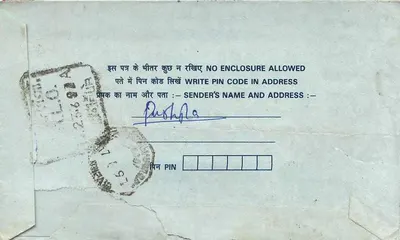 इस पत्र के भीतर कुछ न रखिए NO ENCLOSURE ALLOWED
पते में पिन कोड लिखें WRITE PIN CODE IN ADDRESS
प्रेषक का नाम और पता :— SENDER'S NAME AND ADDRESS :—
Pushpa
पिन PIN
R.L.O.